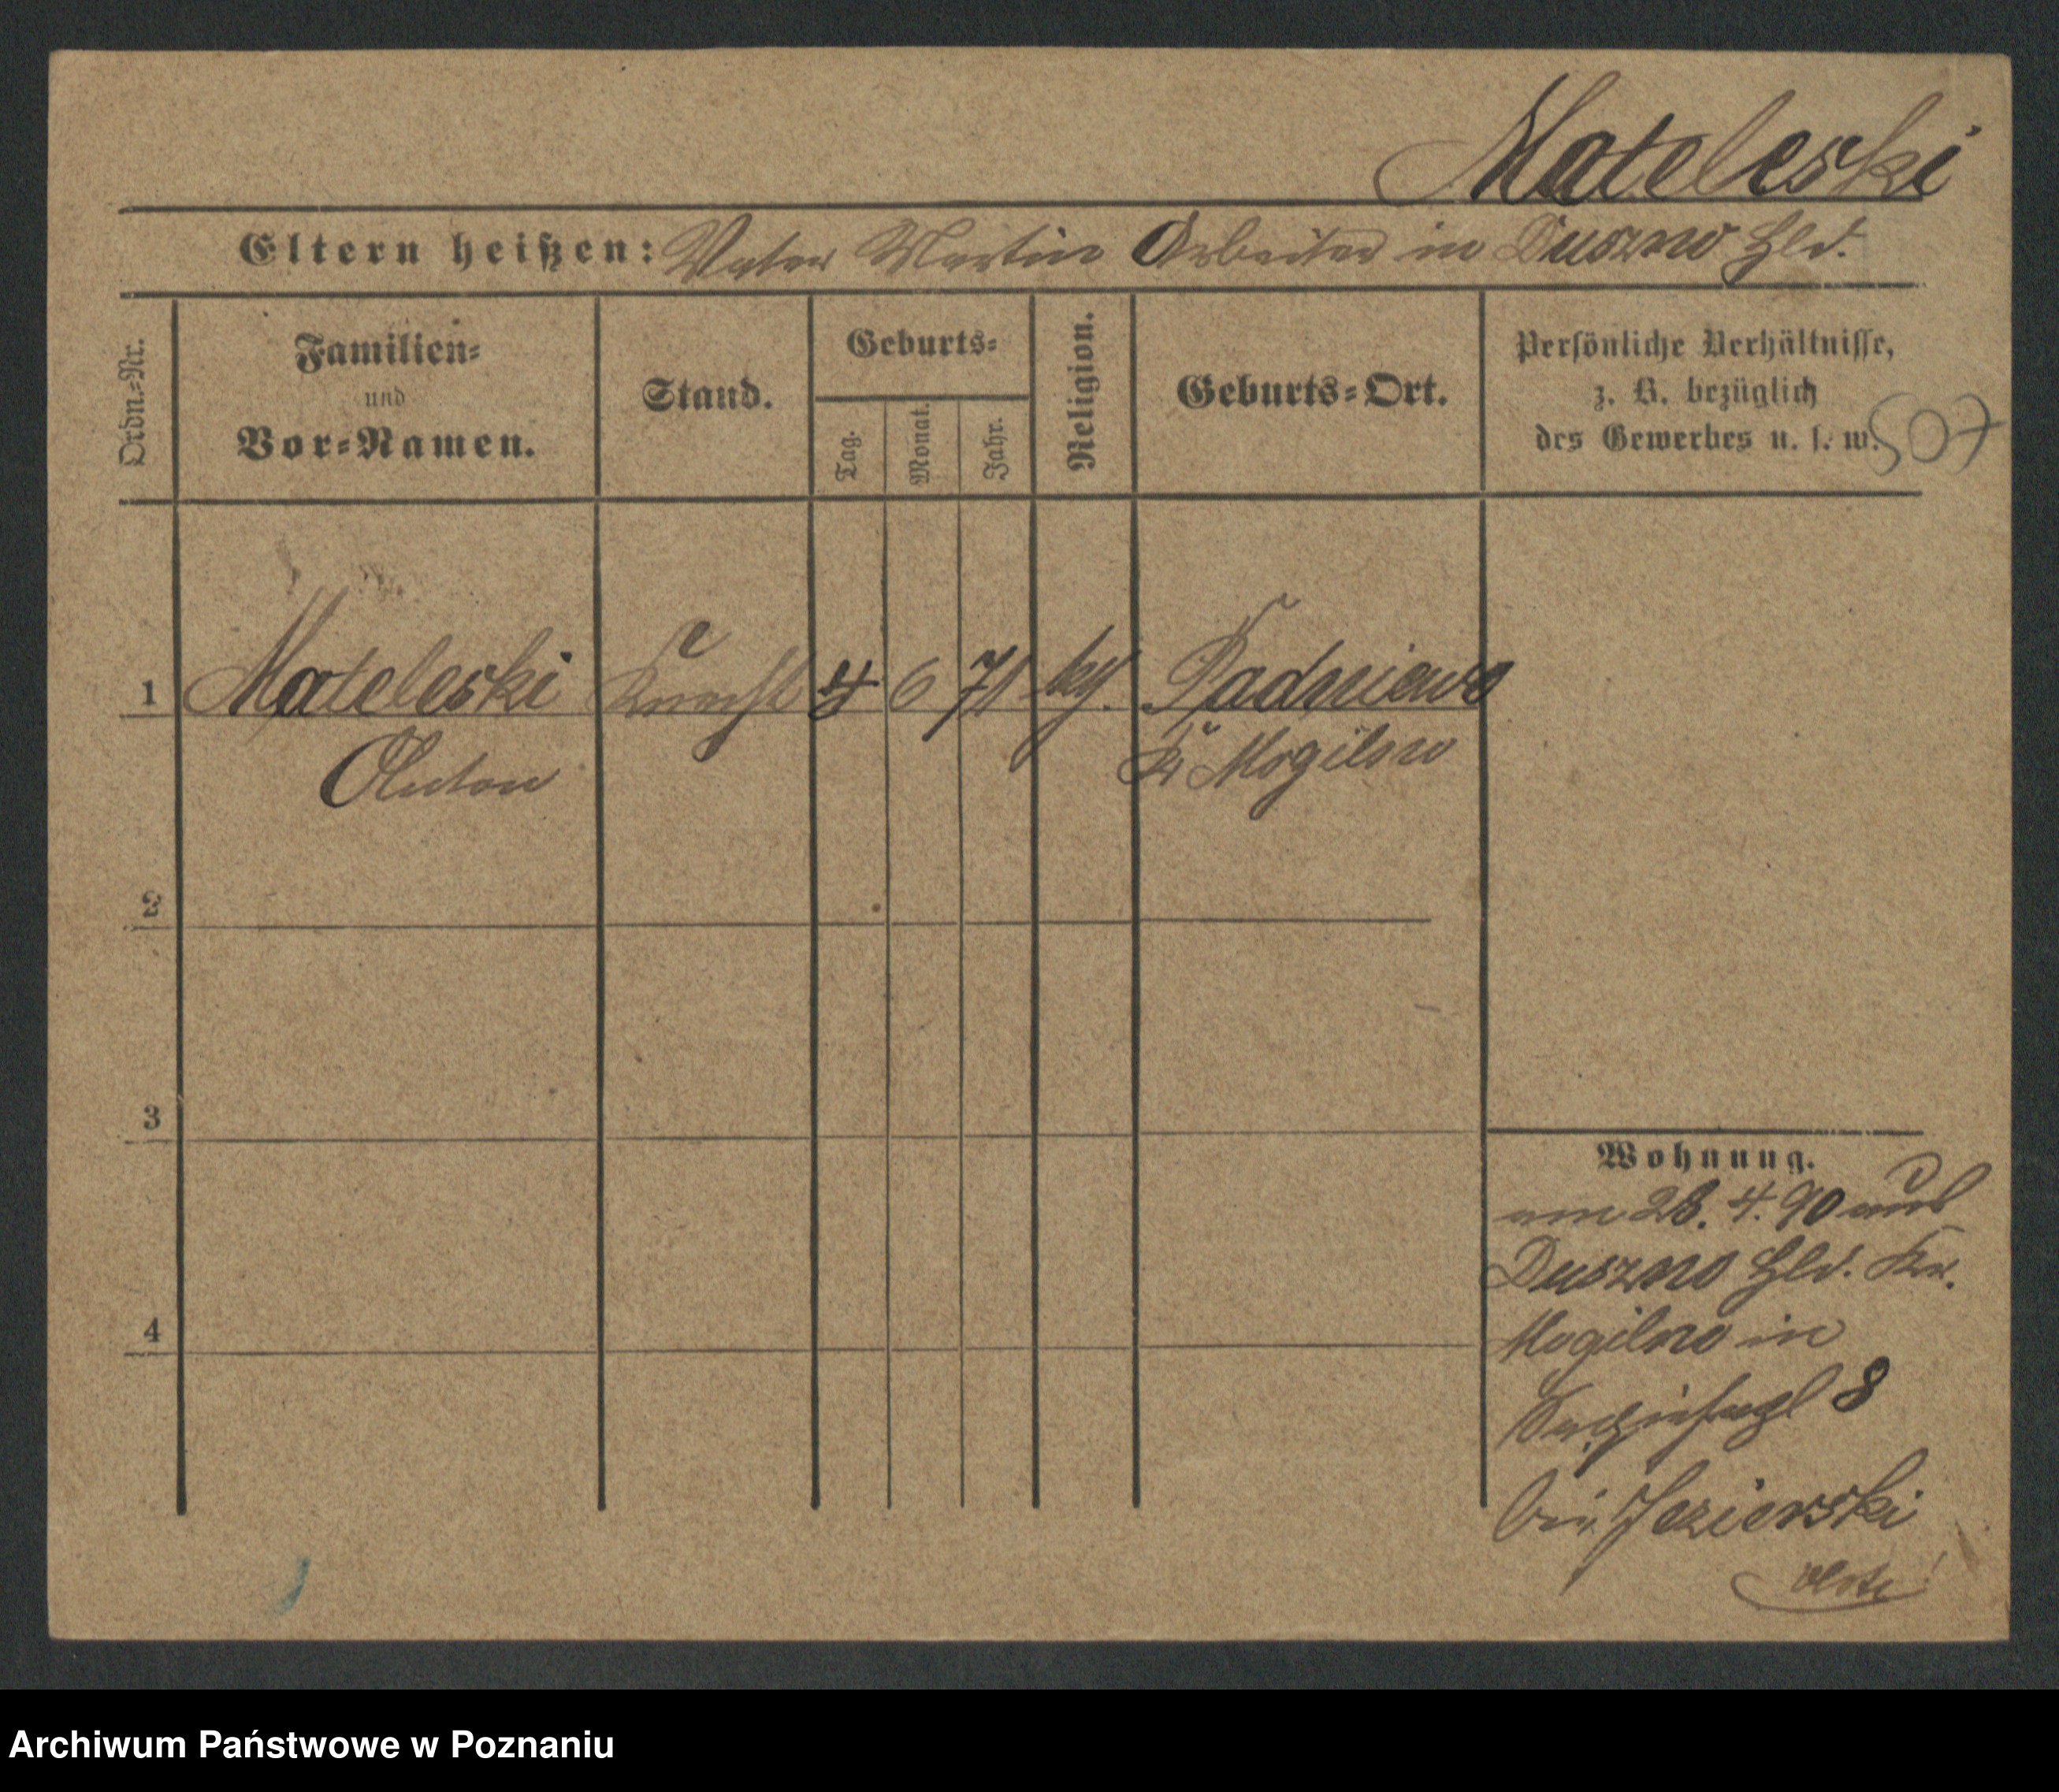 Mateleski
Eltern heißen: Vater Martin Arbeiter in Duszno Hld.
Ordn.=Nr.
Familien=
und
Vor=Namen.
Stand.
Geburts=
Tag.
Monat.
Jahr.
Religion.
Geburts=Ort.
Persönliche Verhältnisse,
z. B. bezüglich
des Gewerbes u. s. w.
507
1 Mateleski Knecht 4 6 71 kth. Padniewo
Anton Kr Mogilno
2
3
4
Wohnung.
am 28. 4. 90 aus
Duszno Hld. Kr.
Mogilno in
8
bei Jezierski
Archiwum Państwowe w Poznaniu